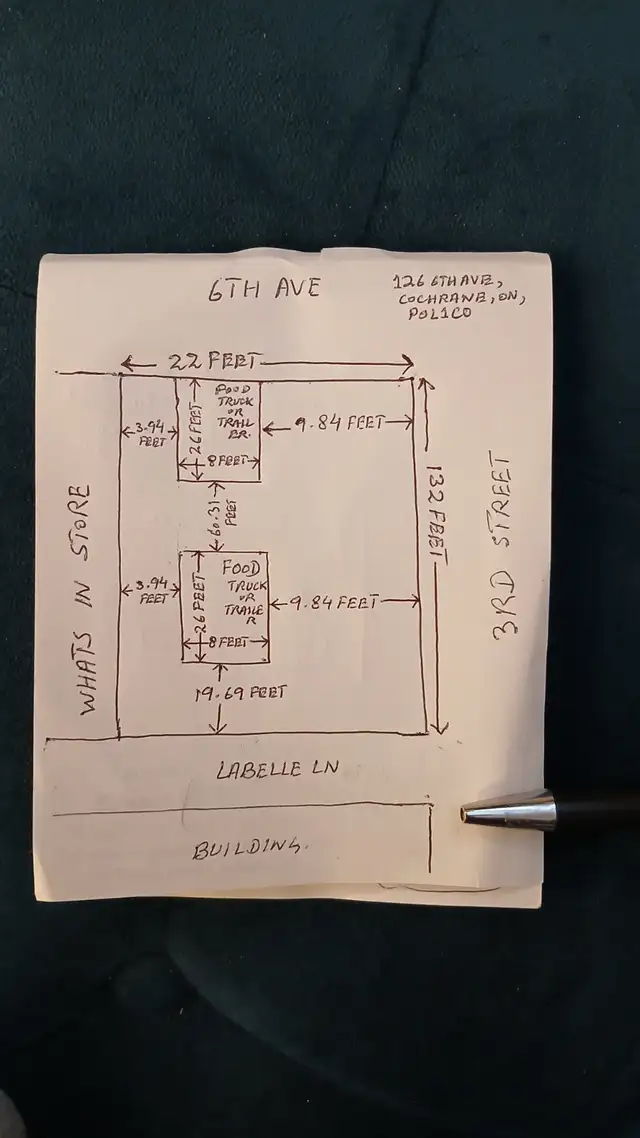 6TH AVE
126 6TH AVE,
COCHRANE, ON,
POL1CO
22 FEET
3.94
FEET
26 FEET
FOOD
TRUCK
OR
TRAIL
ER.
8 FEET
9.84 FEET
132 FEET
3RD STREET
WHATS IN STORE
60.31
FEET
3.94
FEET
26 FEET
FOOD
TRUCK
OR
TRAILE
R
8 FEET
9.84 FEET
19.69 FEET
LABELLE LN
BUILDING.